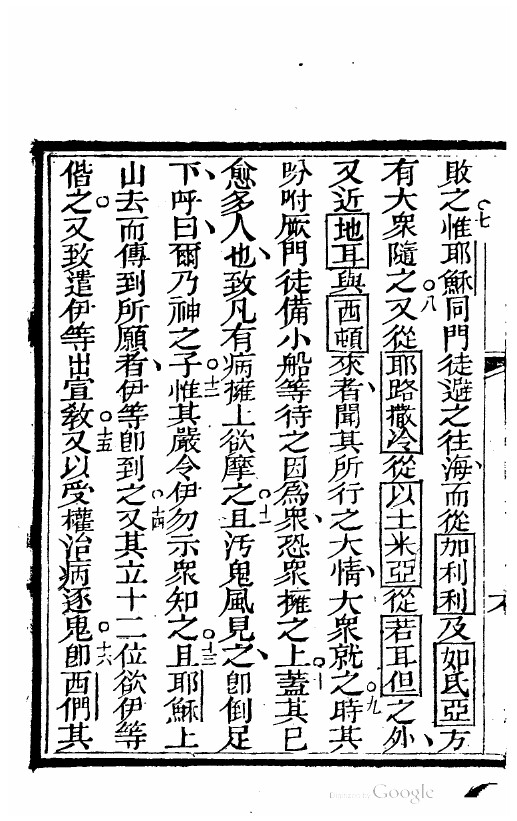 敗之七惟耶穌同門徒避之往海而從加利利及如氐亞方
有大衆隨之八又從耶路撒冷從以土米亞從若耳但之外
又近地耳與西頓來者聞其所行之大情大衆就之九時其
吩咐厥門徒備小船等待之因爲衆恐衆擁之上十蓋其已
愈多人也致凡有病擁上欲摩之十一且汚鬼風見之卽倒足
下呼曰爾乃神之子十二惟其嚴令伊勿示衆知之十三且耶穌上
山去而傳到所願者伊等卽到之十四又其立十二位欲伊等
偕之又致遣伊等出宣教十五又以受權治病逐鬼十六卽西們其
Digitized by Google